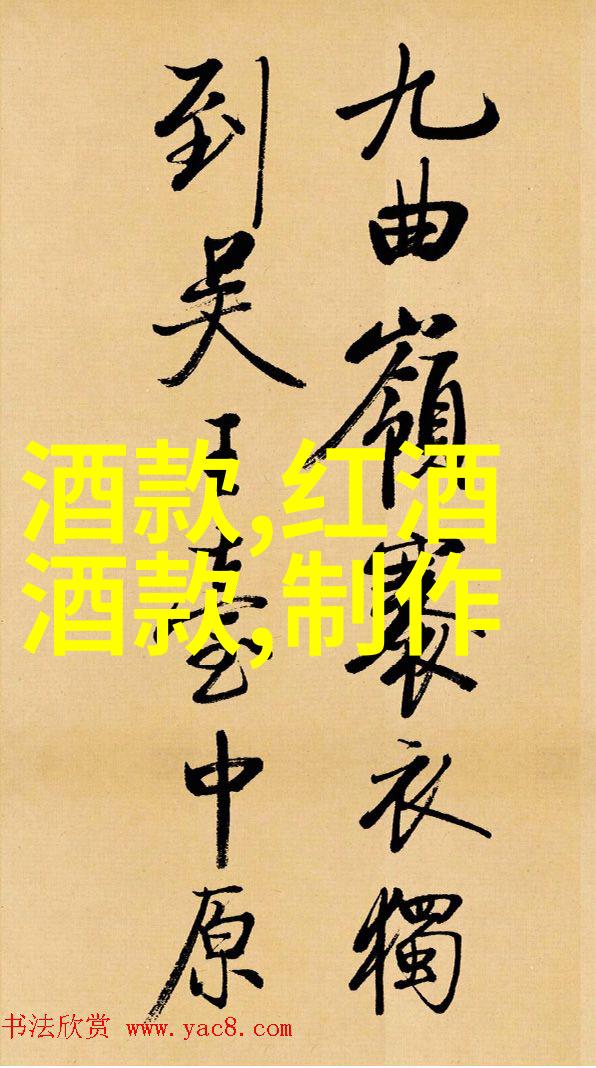 九曲嶺褰衣獨
到吴王臺中原
酒款,红酒
酒款,制作
书法欣赏 www.yac8.com